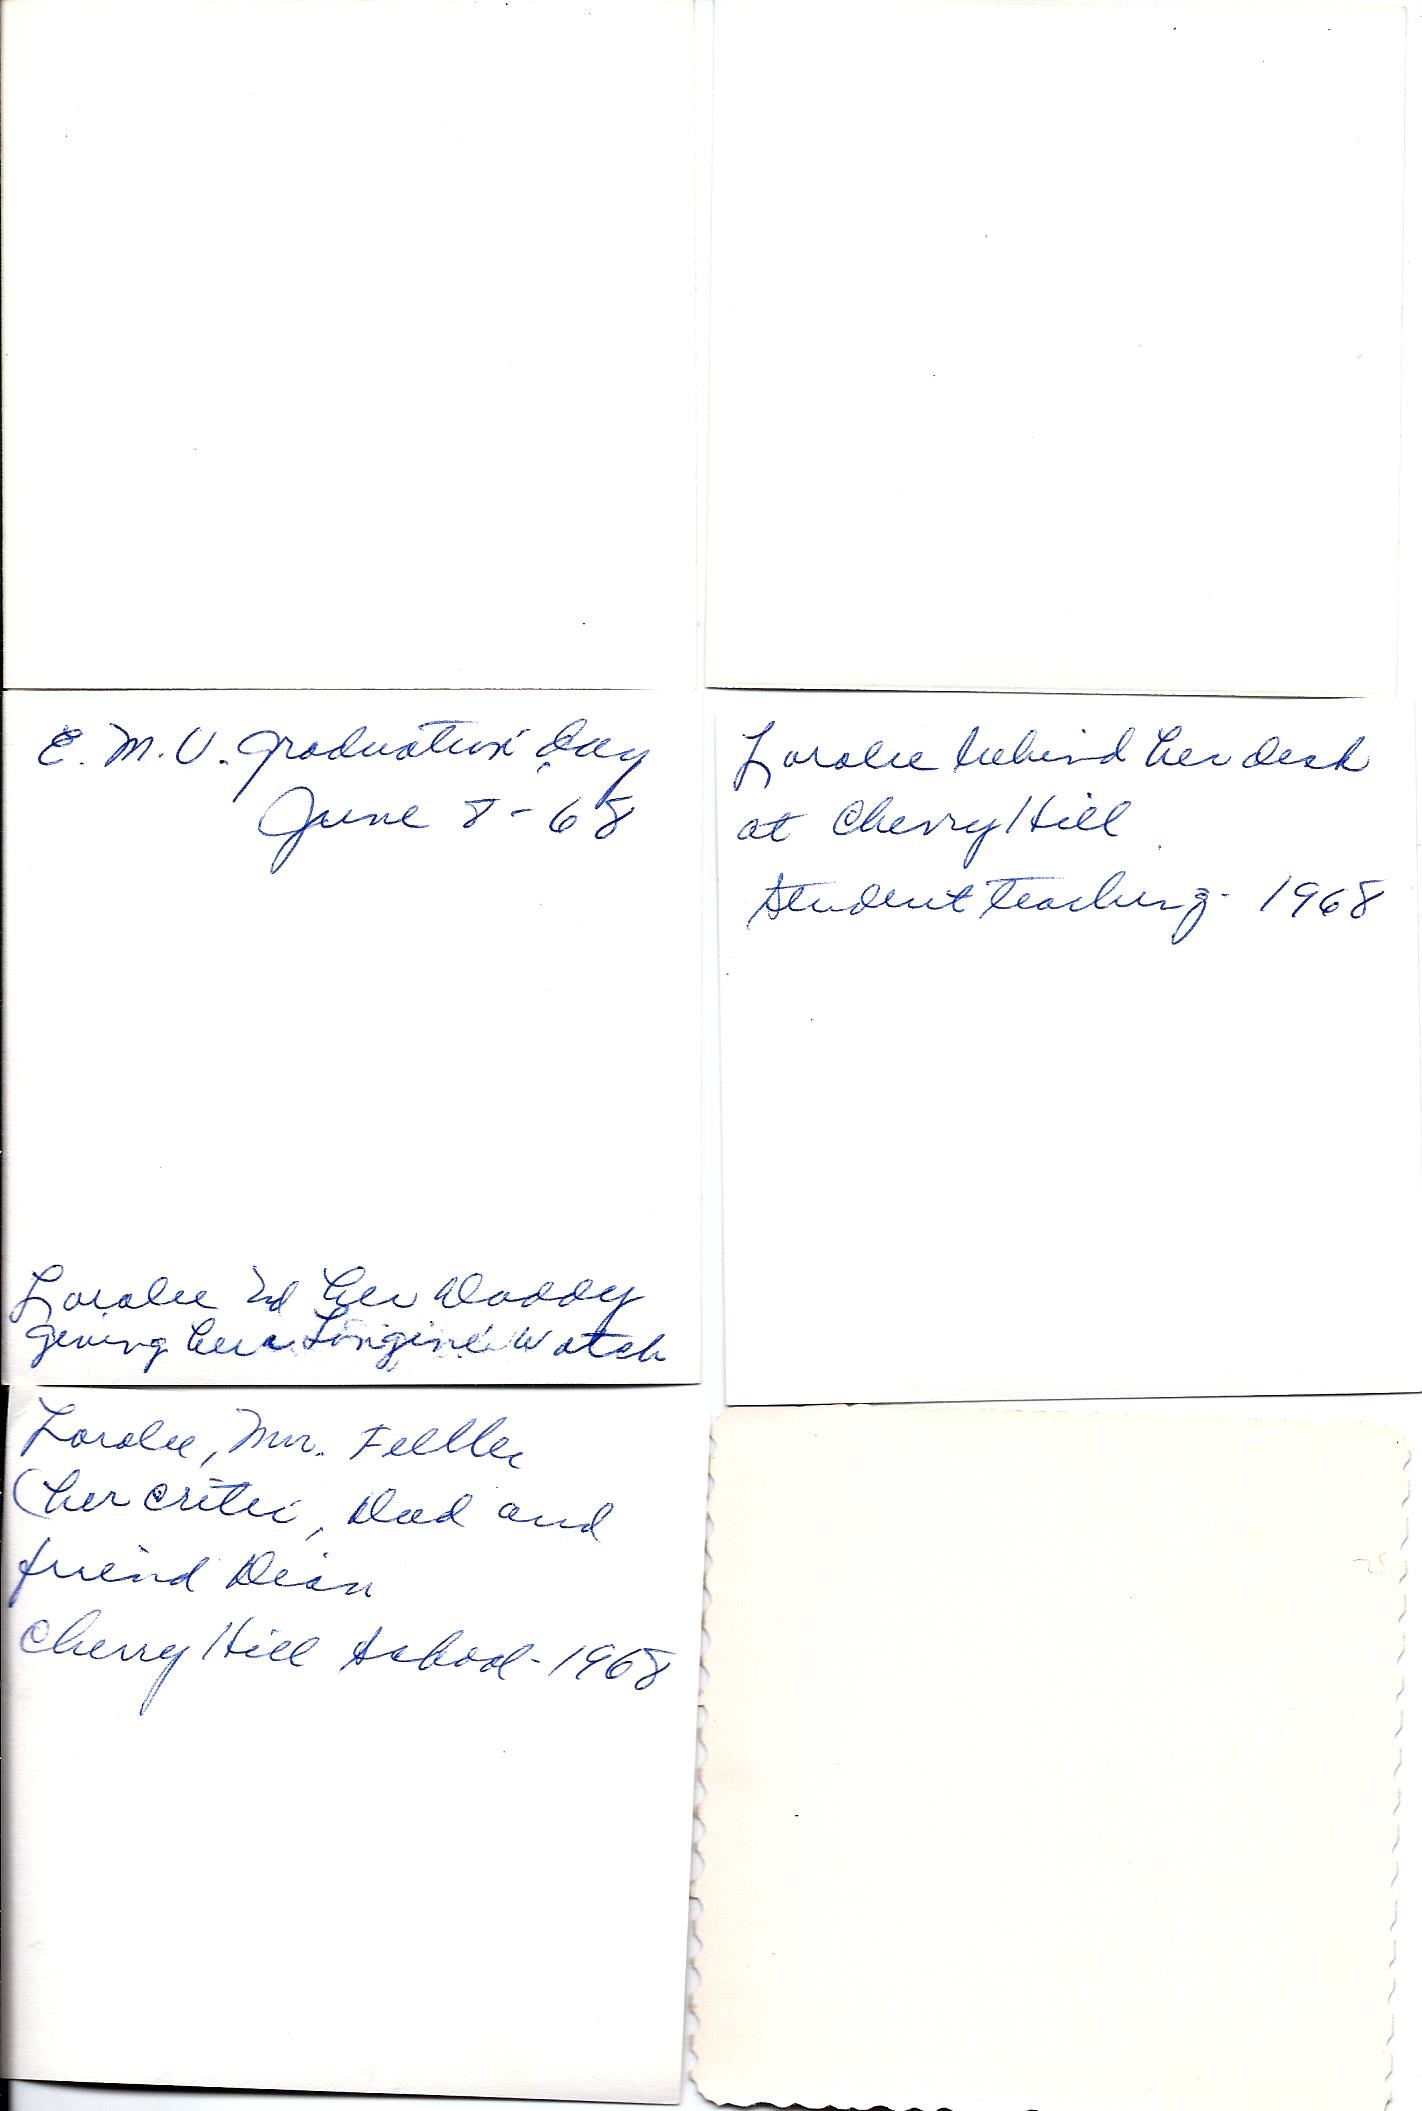 E. M. U. Graduation Day
June 8-68
Loralee and her Daddy
giving her a Longine Watch
Loralee behind her desk
at Cherry Hill
Student Teaching - 1968
Loralee, Mr.
(her critic, Dad and
friend Dian
Cherry Hill School - 1968